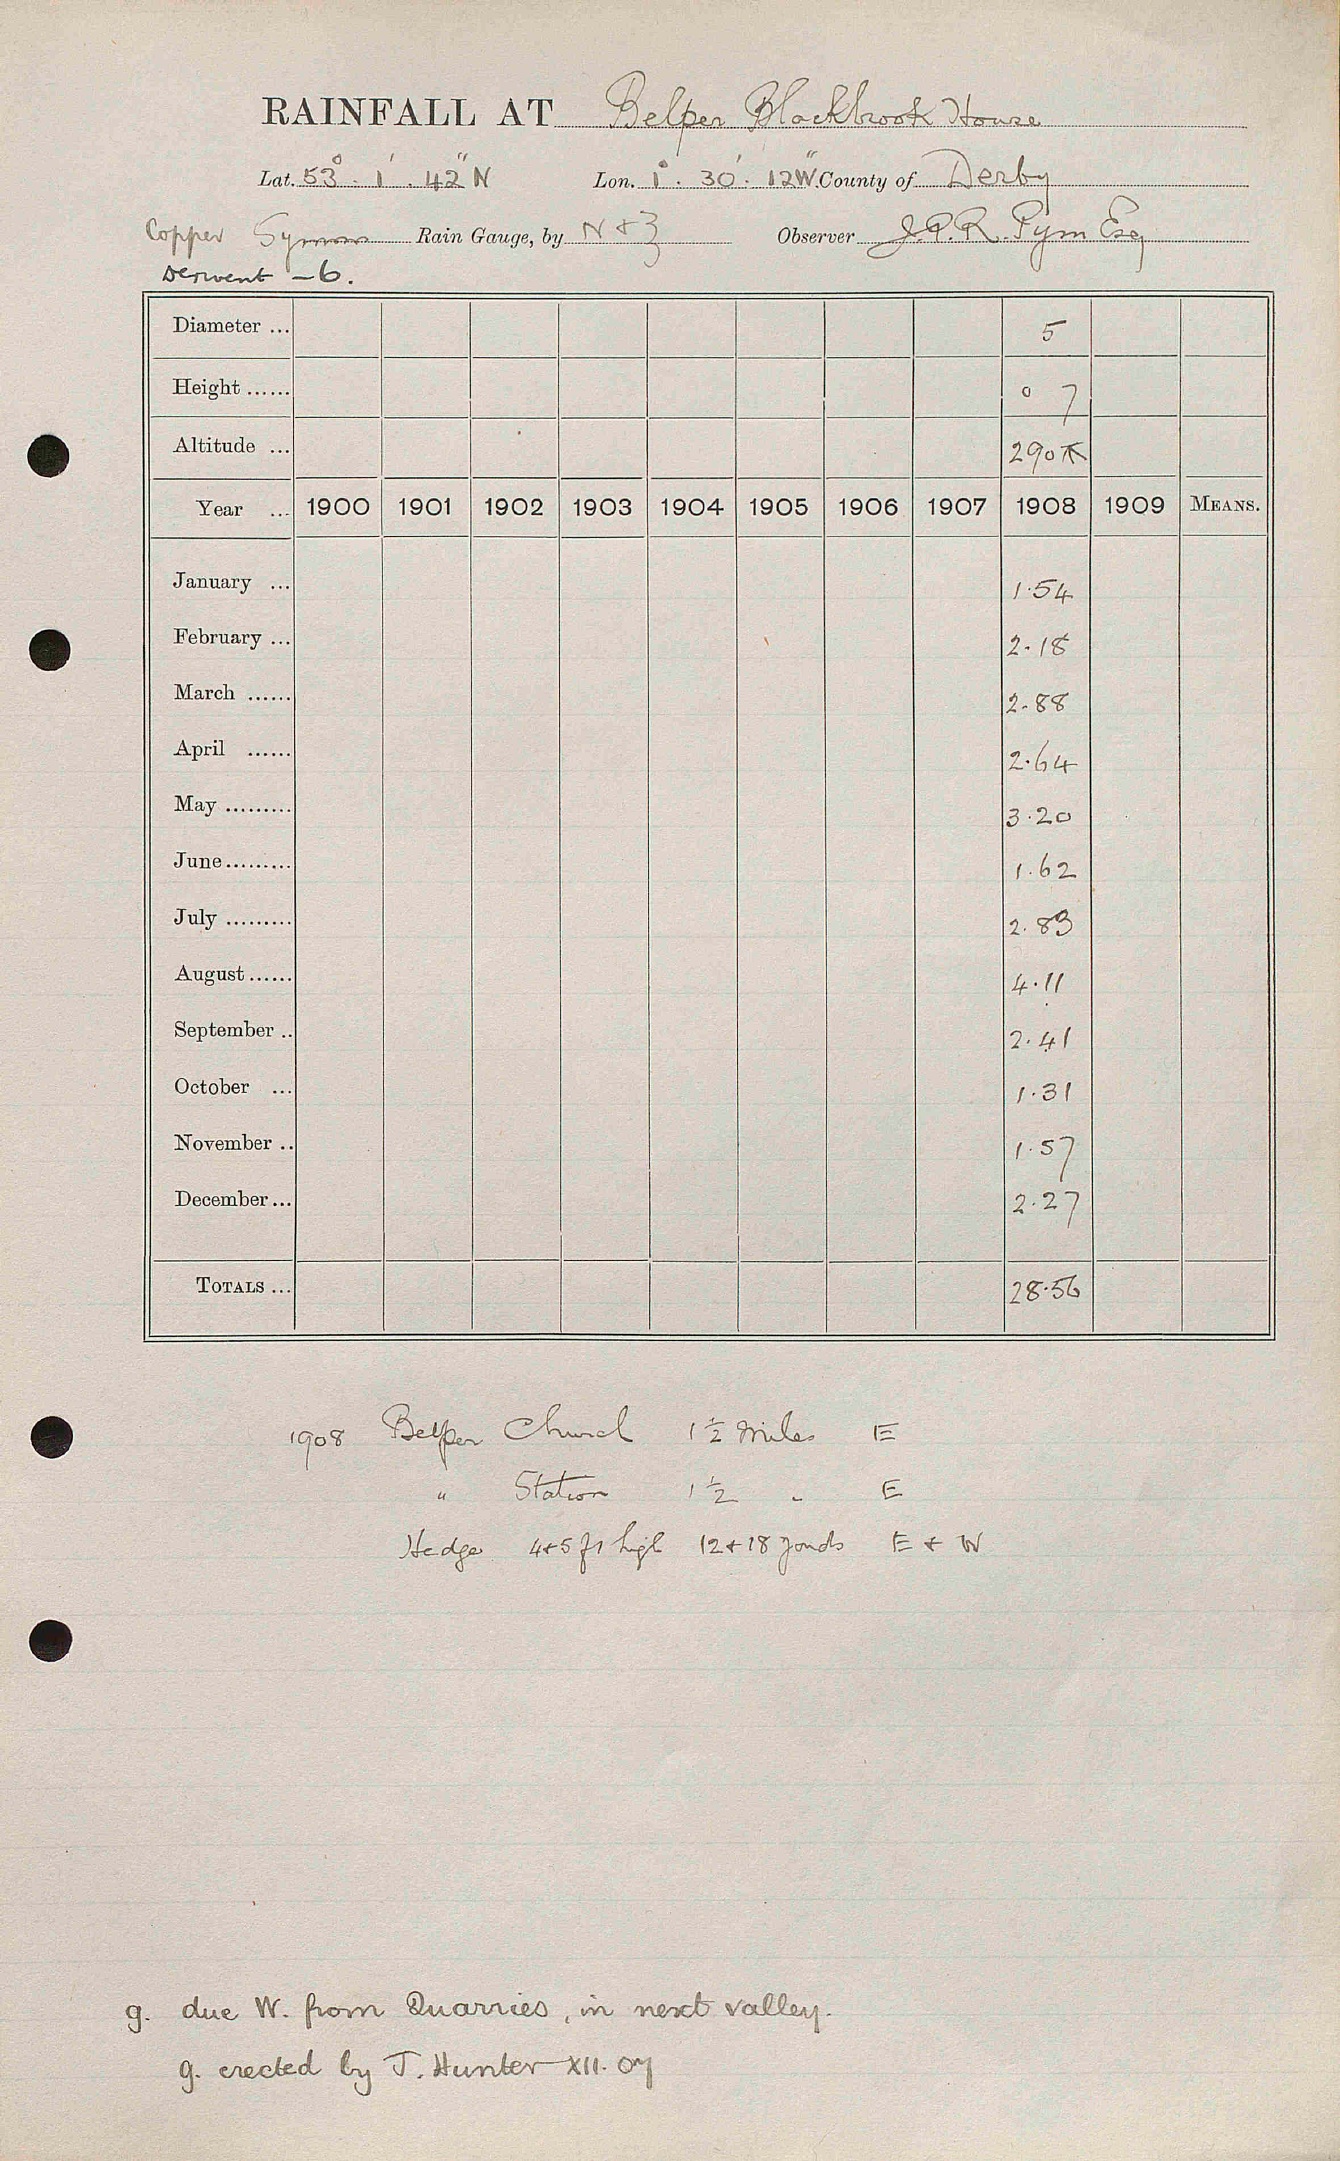 RAINFALL AT Belper Blackbrook House
Lat. 53° . 1' . 42" N Lon. 1° . 30' . 12" W. County of Derby
Copper Symons Rain Gauge, by N & Z Observer J.P.R. Pym Esq
Derwent - 6.
Diameter ... 5
Height ...... 0 7
Altitude ... 290 ft
Year ... 1900 1901 1902 1903 1904 1905 1906 1907 1908 1909 MEANS.
January ... 1.54
February ... 2.18
March ...... 2.88
April ...... 2.64
May ......... 3.20
June ......... 1.62
July ......... 2.83
August ...... 4.11
September .. 2.41
October ... 1.31
November .. 1.57
December ... 2.27
TOTALS ... 28.56
1908 Belper Church 1½ Miles E
" Station 1½ " E
Hedge 4 & 5 ft high 12 & 18 yards E & W
g. due W. from Quarries, in next valley.
g. erected by J. Hunter XII. 07